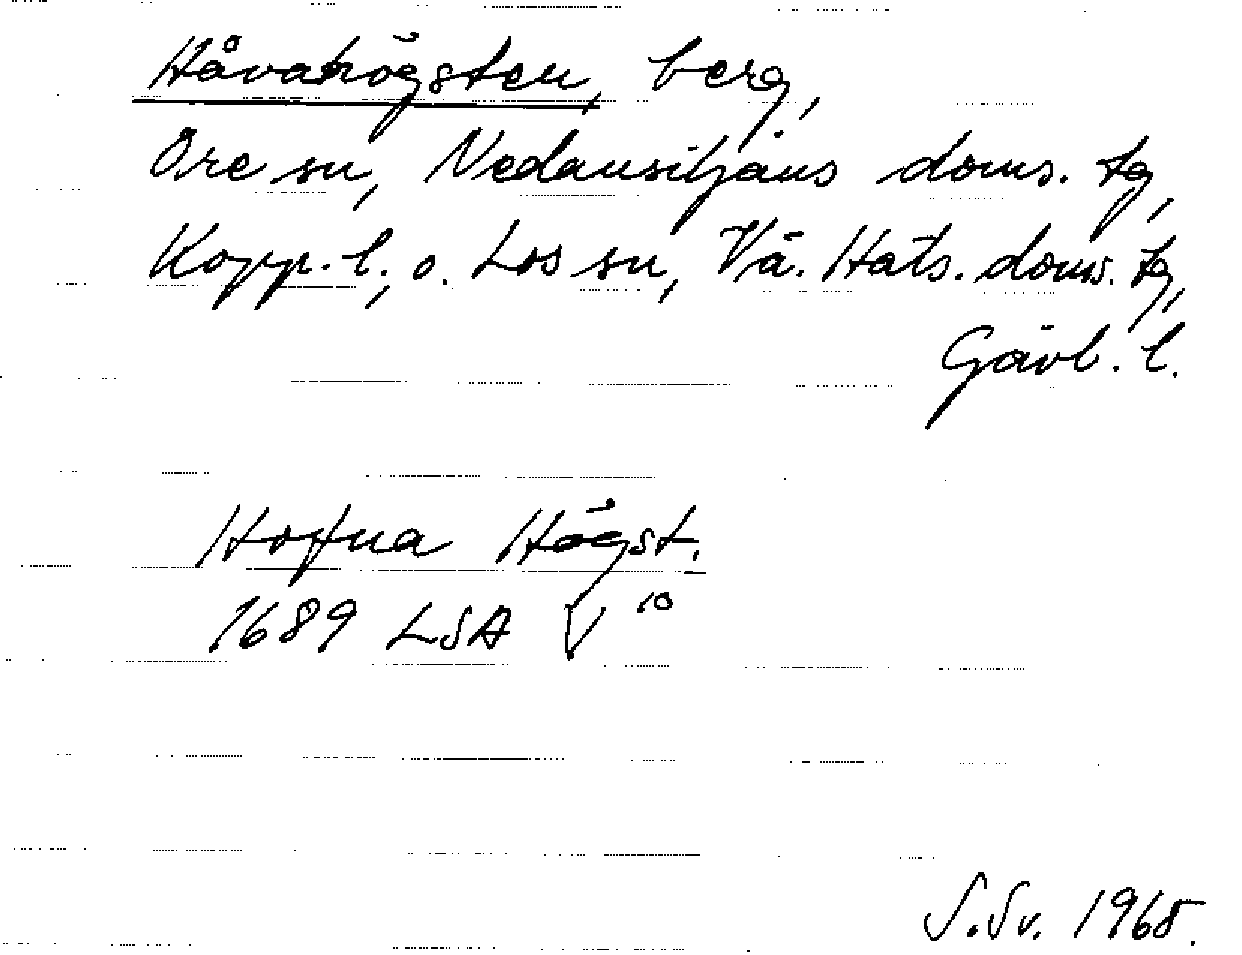 Håvahögsten, berg,
Ore sn, Nedansiljans doms. tg,
Kopp. l., o. Los sn, Vä. Häls. doms. tg,
Gävl. l.
Hofna Högst.
1689 LSA V 10
S.Sv. 1965.